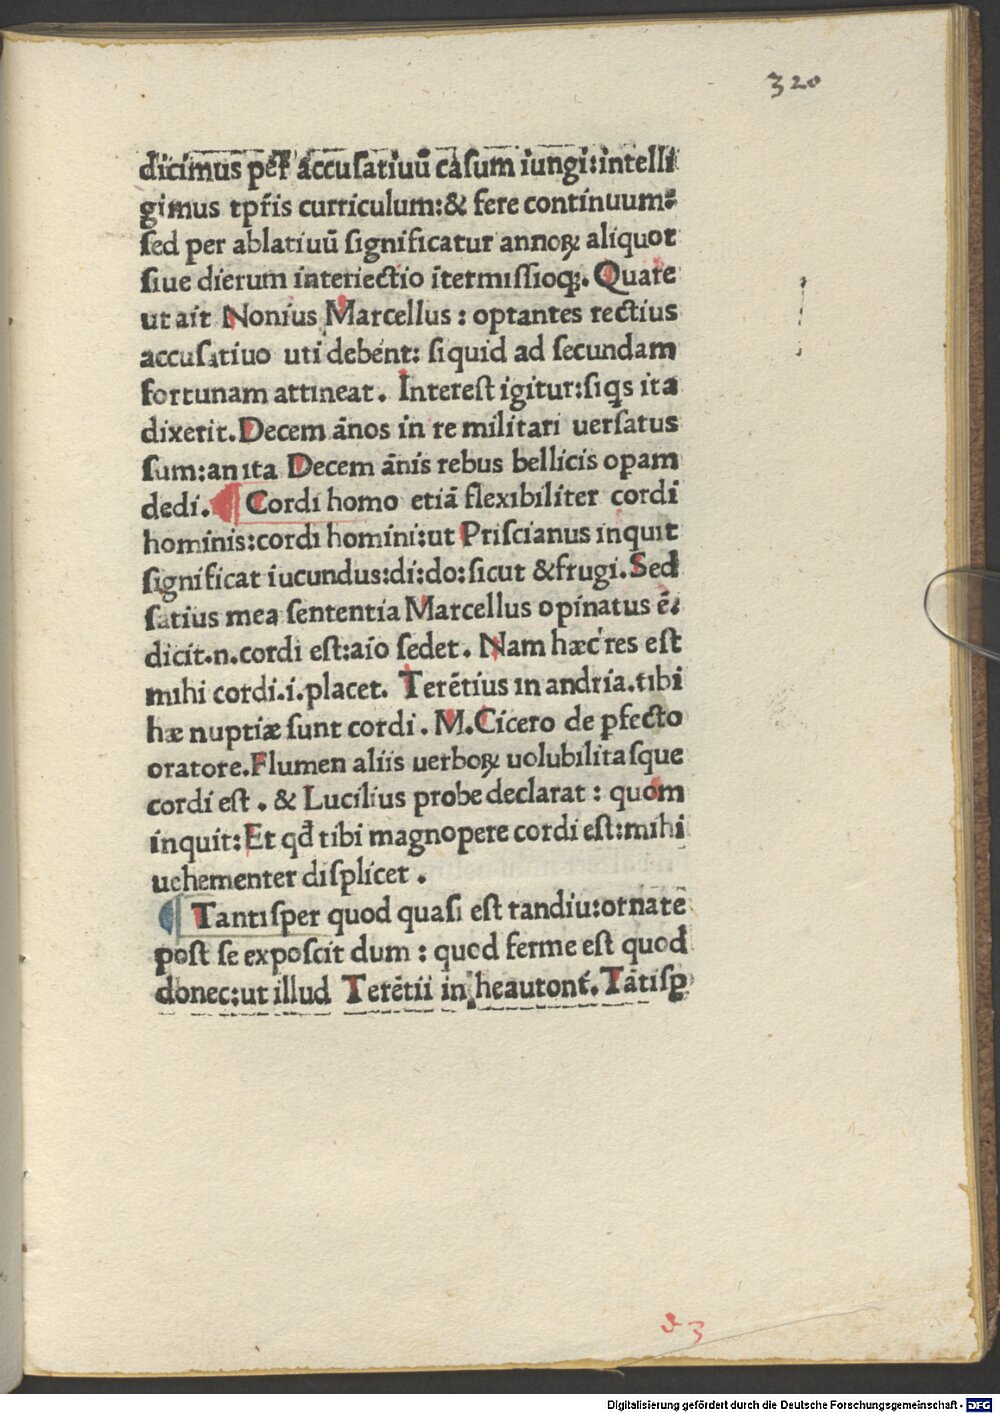 320
dicimus per accusatiuũ casum iungi:intelli
gimus tpr̃is curriculum:& fere continuum:
sed per ablatiuũ significatur annoꝝ aliquot
siue dierum interiectio ĩtermissioqꝫ. Quare
ut ait Nonius Marcellus : optantes rectius
accusatiuo uti debent: siquid ad secundam
fortunam attineat. Interest igitur:siqs ita
dixerit.Decem ãnos in re militari uersatus
sum:an ita Decem ãnis rebus bellicis opam
dedi. Cordi homo etiã flexibiliter cordi
hominis:cordi homini:ut Priscianus inquit
significat iucundus:di:do:sicut &frugi.Sed
satius mea sententia Marcellus opinatus ẽ.
dicit.n.cordi est:aio sedet. Nam hæc res est
mihi cordi.i.placet. Terẽtius in andria.tibi
hæ nuptiæ sunt cordi. M.Cicero de ꝑfecto
oratore.Flumen aliis uerboꝝ uolubilitasque
cordi est. & Lucilius probe declarat : quom
inquit:Et qd̃ tibi magnopere cordi est:mihi
uehementer displicet.
Tantisper quod quasi est tandiu:ornate
post se exposcit dum : quod ferme est quod
donec:ut illud Terẽtii in heautont̃. Tãtisꝑ
d 3
Digitalisierung gefördert durch die Deutsche Forschungsgemeinschaft - DFG